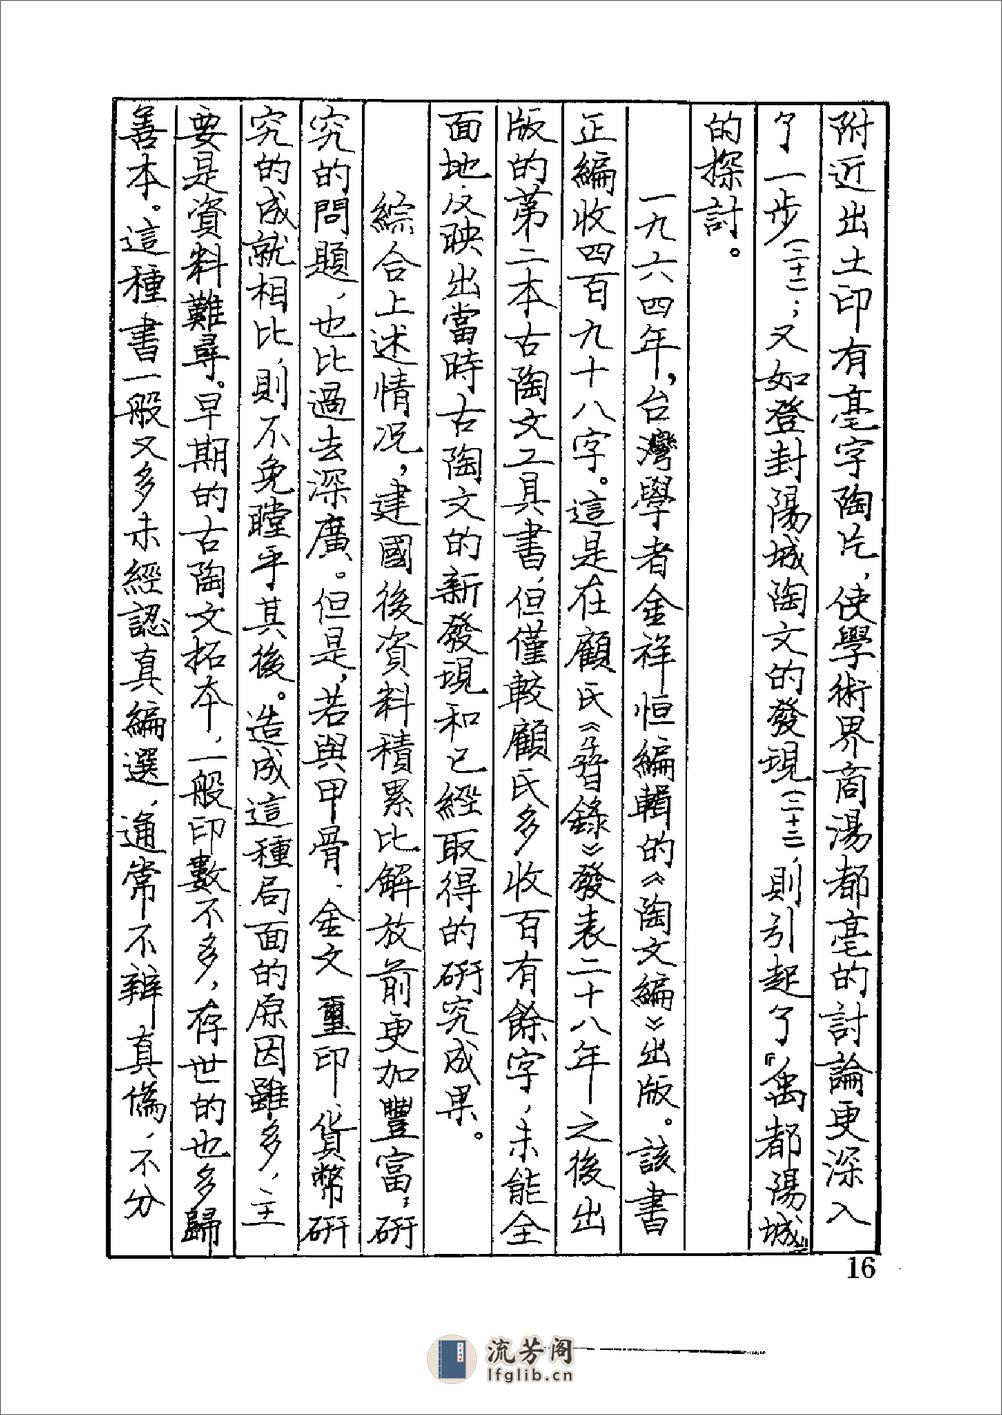 附近出土印有亳字陶片，使學術界商湯都亳的討論更深入
了一步（二十一）；又如登封陽城陶文的發現（二十二），則引起了『禹都陽城』
的探討。
一九六四年，台灣學者金祥恒編輯的《陶文編》出版。該書
正編收四百九十八字。這是在顧氏《孴錄》發表二十八年之後出
版的第二本古陶文工具書，但僅較顧氏多收百有餘字，未能全
面地反映出當時古陶文的新發現和已經取得的研究成果。
綜合上述情況，建國後資料積累比解放前更加豐富；研
究的問題，也比過去深廣。但是，若與甲骨、金文、璽印、貨幣研
究的成就相比，則不免瞠乎其後。造成這種局面的原因雖多，主
要是資料難尋。早期的古陶文拓本，一般印數不多，存世的也多歸
善本。這種書一般又多未經認真編選，通常不辨真僞，不分
16
流芳阁
lfglib.cn